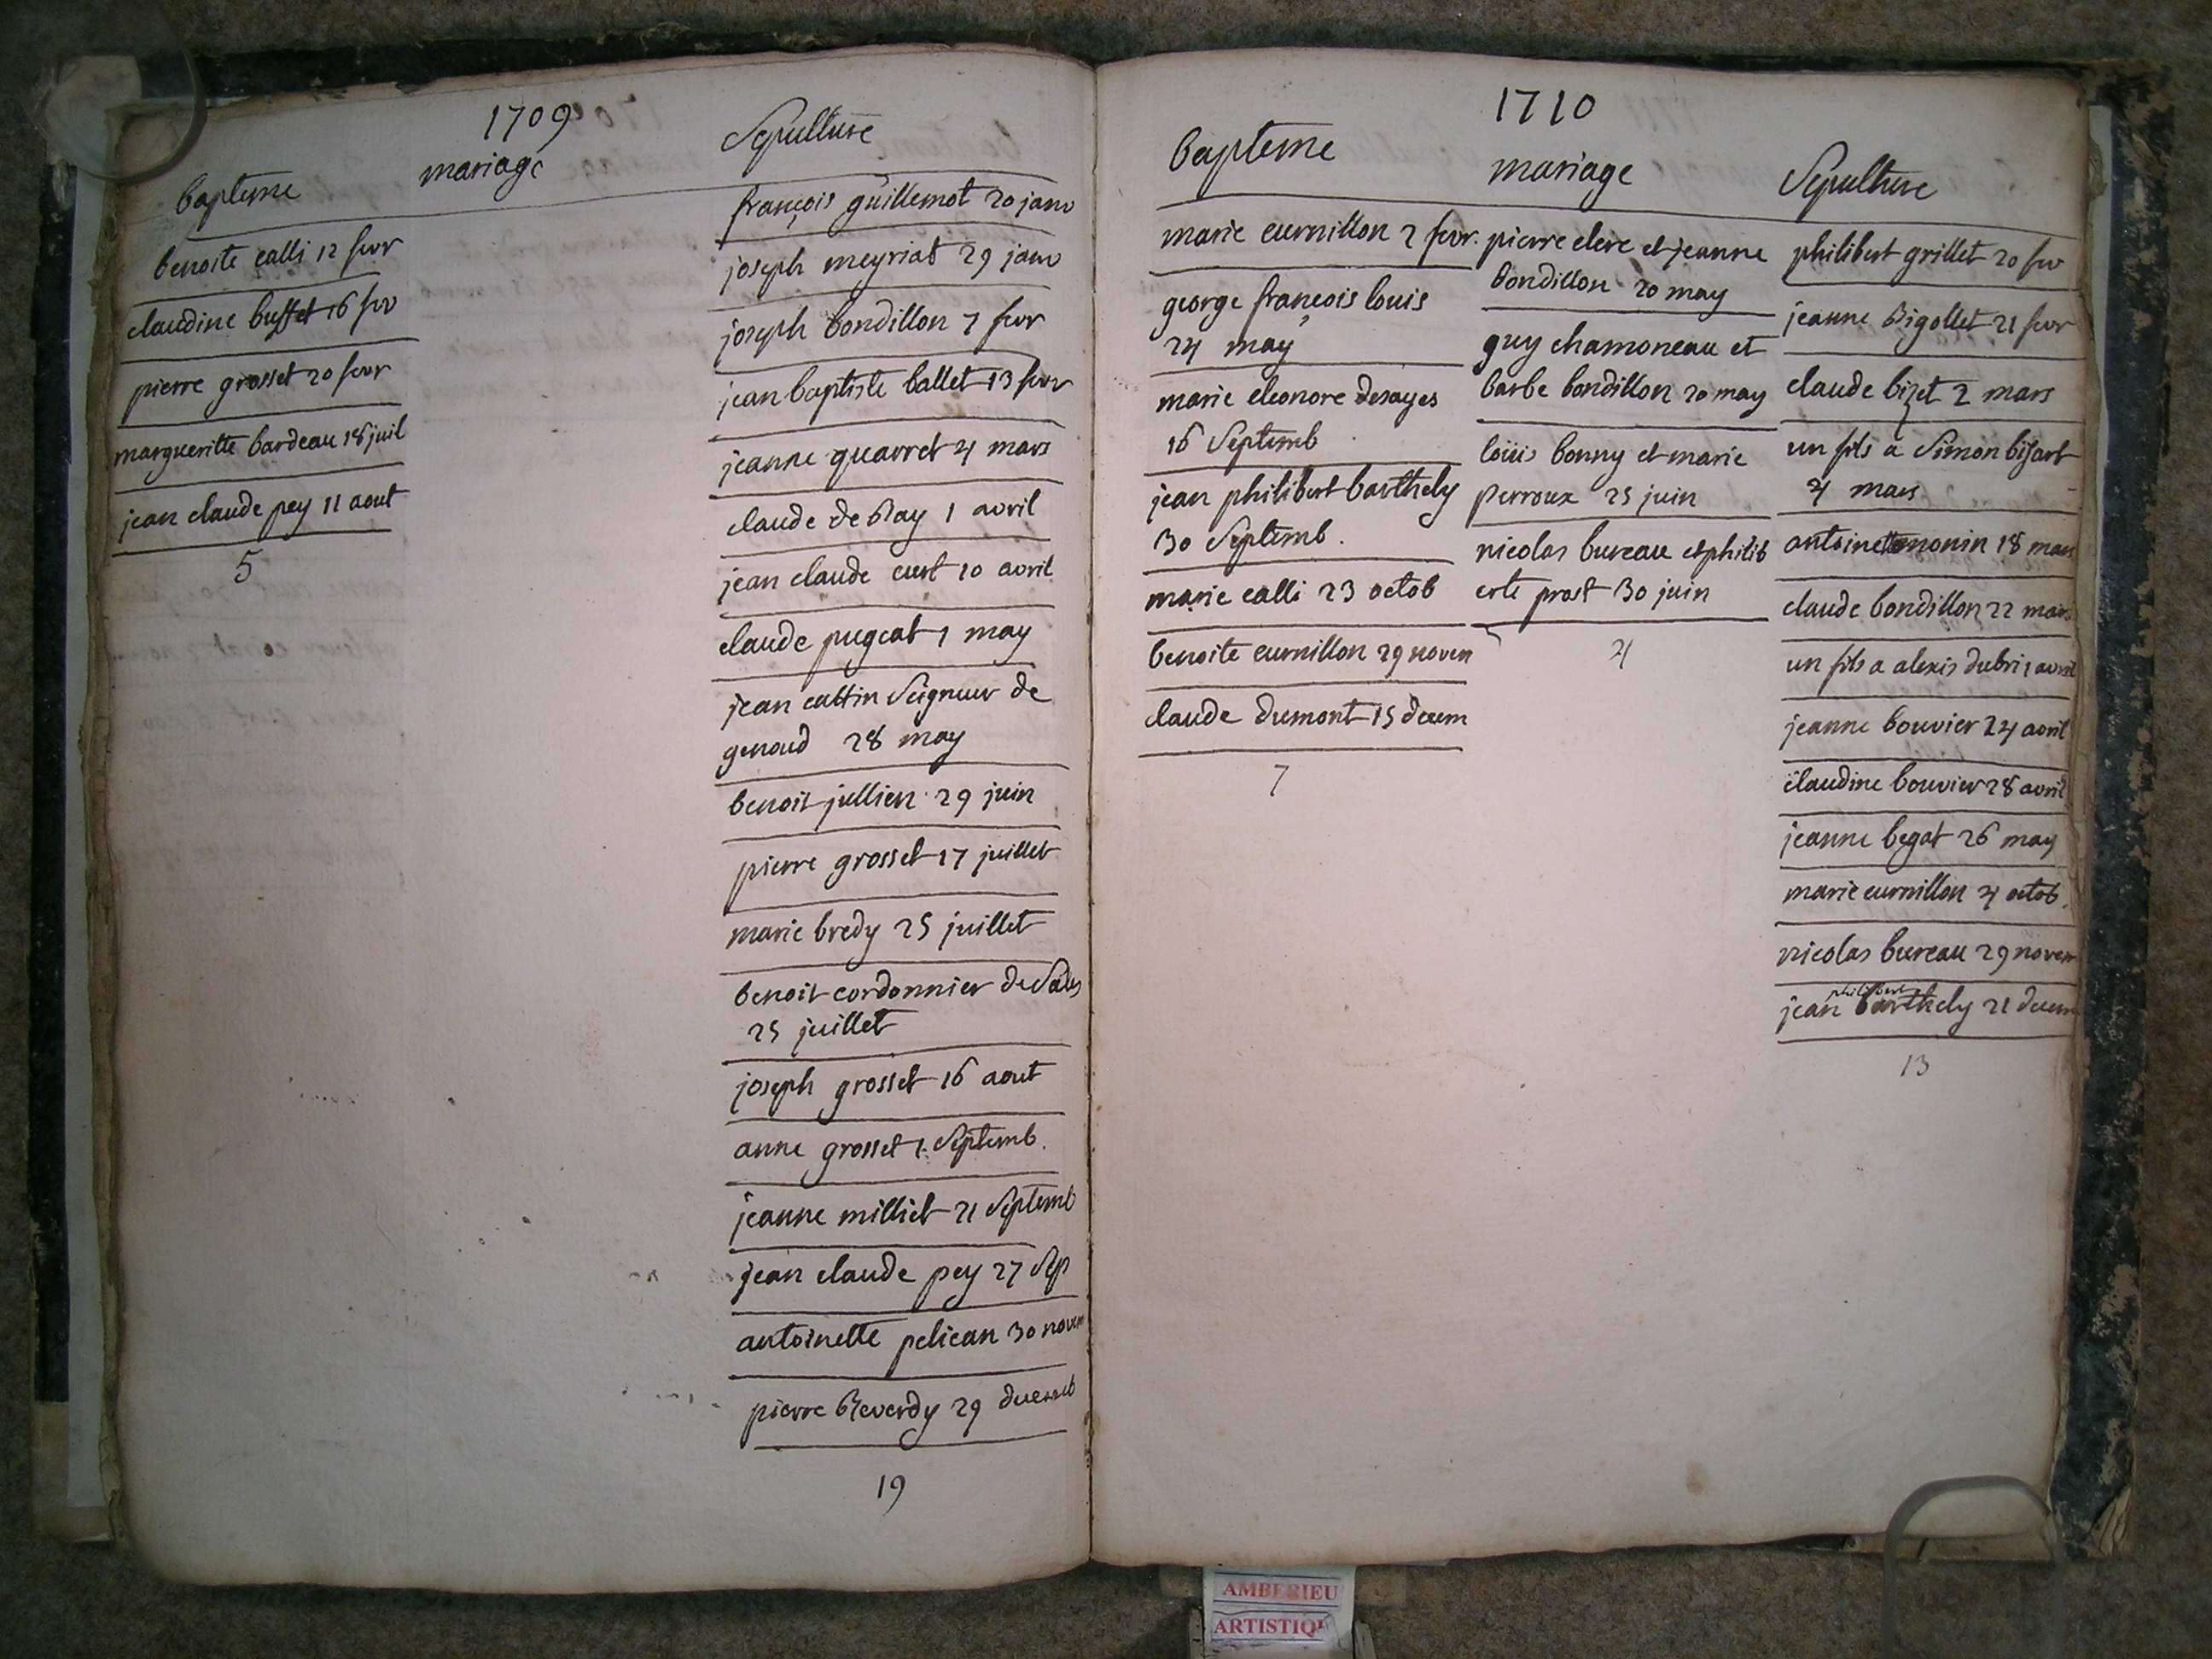 1709
bapteme
benoite calli 12 fevr
claudine buffet 16 fev
pierre grosset 20 fevr
margueritte bardeau 18 juil
jean claude pey 11 aout
5
mariage
Sepulture
françois guillemot 20 janv
joseph meyriat 29 janv
joseph bondillon 7 fevr
jean baptiste ballet 13 fevr
jeanne quarret 4 mars
claude de Ray 1 avril
jean claude curt 10 avril
claude pugeat 1 may
jean cattin Seigneur de
genoud 28 may
benoit jullien 29 juin
pierre grosset 17 juillet
marie bredy 25 juillet
benoit cordonnier de Sales
25 juillet
joseph grosset 16 aout
anne grosset 1 Septemb.
jeanne milliet 21 Septemb
jean claude pey 27 Sep
antoinette pelican 30 novem
pierre Reverdy 29 decemb
19
1710
bapteme
marie curnillon 2 fevr.
george françois louis
24 may
marie eleonore desayes
16 Septemb
jean philibert barthely
30 Septemb.
marie calli 23 octob
benoite curnillon 29 novem
claude dumont 15 decem
7
mariage
pierre clerc et jeanne
bondillon 20 may
guy chamoneau et
barbe bondillon 20 may
loüis bonny et marie
perroux 25 juin
nicolas bureau et philib
erte prost 30 juin
4
Sepulture
philibert grillet 20 fev
jeanne Rigollet 21 fevr
claude bizet 2 mars
un fils a Simon bisart
4 mars
antoinette monin 18 mars
claude bondillon 22 mars
un fils a alexis dubri 1 avril
jeanne bouvier 24 avril
claudine bouvier 28 avril
jeanne begat 26 may
marie curnillon 4 octob.
nicolas bureau 29 novem
philibert
jean barthely 21 decem
13
AMBERIEU
ARTISTIQU